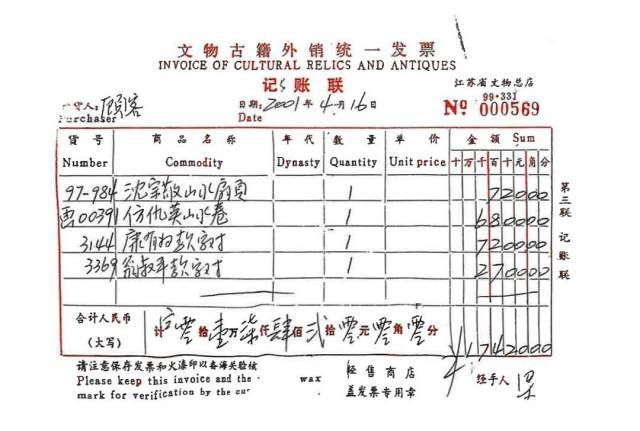 文物古籍外销统一发票
INVOICE OF CULTURAL RELICS AND ANTIQUES
记账联
江苏省文物总店
货人：顾客
Purchaser
日期：2001年4月16日
Date
99·331
№ 000569
货号 商品名称 年代 数量 单价 金额 Sum
Number Commodity Dynasty Quantity Unit price 十万千百十元角分
97-984 沈宗敬山水扇页 1 72000
00391 仿仇英山水卷 1 680000
3144 康有为款字对 1 720000
3369 翁叔平款字对 1 270000
合计人民币
(大写)
计 零拾壹万柒仟肆佰贰拾零元零角零分 ¥1742000
第三联 记账联
请注意保存发票和火漆印以备海关验核
Please keep this invoice and the wax
mark for verification by the cus
经售商店
盖发票专用章
经手人